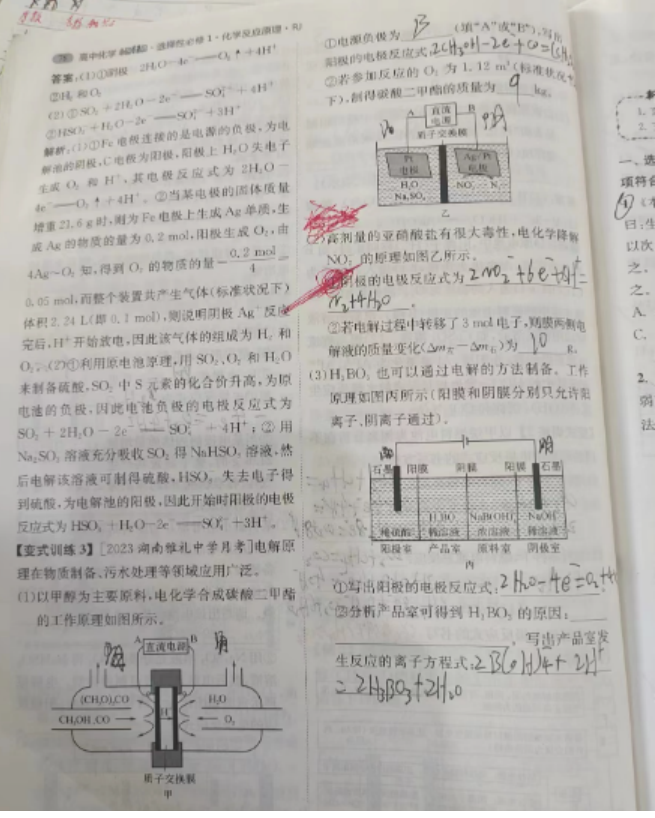 高中化学 选择性必修1·化学反应原理·RJ
答案:(1)①阴极 2H₂O-4e⁻══O₂↑+4H⁺
②H₂和O₂
(2)①SO₂+2H₂O-2e⁻══SO₄²⁻+4H⁺
②HSO₃⁻+H₂O-2e⁻══SO₄²⁻+3H⁺
解析:(1)①Fe电极连接的是电源的负极,为电
解池的阴极,C电极为阳极,阳极上H₂O失电子
生成O₂和H⁺,其电极反应式为2H₂O-
4e⁻══O₂↑+4H⁺。②当某电极的固体质量
增重21.6 g时,则为Fe电极上生成Ag单质,生
成Ag的物质的量为0.2 mol,阳极生成O₂,由
4Ag~O₂知,得到O₂的物质的量=0.2 mol/4=
0.05 mol,而整个装置共产生气体(标准状况下)
体积2.24 L(即0.1 mol),则说明阴极Ag⁺反应
完后,H⁺开始放电,因此该气体的组成为H₂和
O₂;(2)①利用原电池原理,用SO₂、O₂和H₂O
来制备硫酸,SO₂中S元素的化合价升高,为原
电池的负极,因此电池负极的电极反应式为
SO₂+2H₂O-2e⁻══SO₄²⁻+4H⁺;②用
Na₂SO₃溶液充分吸收SO₂得NaHSO₃溶液,然
后电解该溶液可制得硫酸,HSO₃⁻失去电子得
到硫酸,为电解池的阳极,因此开始时阳极的电极
反应式为HSO₃⁻+H₂O-2e⁻══SO₄²⁻+3H⁺。
【变式训练3】[2023湖南雅礼中学月考]电解原
理在物质制备、污水处理等领域应用广泛。
(1)以甲醇为主要原料,电化学合成碳酸二甲酯
的工作原理如图所示。
A 直流电源 B
阳 阴
(CH₃O)₂CO H₂O
CH₃OH、CO H⁺ O₂
质子交换膜
甲
①电源负极为 B (填“A”或“B”),写出
阳极的电极反应式:2CH₃OH-2e⁻+CO=(CH₃
②若参加反应的O₂为1.12 m³(标准状况
下),制得碳酸二甲酯的质量为 9 kg。
A 直流电源 B
质子交换膜
Pt电极 Ag-Pt电极
H₂O NO₂⁻ N₂
Na₂SO₄
乙
(2)高剂量的亚硝酸盐有很大毒性,电化学降解
NO₂⁻的原理如图乙所示。
①阴极的电极反应式为 2NO₂⁻+6e⁻+8H⁺=
N₂+4H₂O。
②若电解过程中转移了3 mol电子,则膜两侧电
解液的质量变化(Δm左-Δm右)为 10 g。
(3)H₃BO₃也可以通过电解的方法制备。工作
原理如图丙所示(阳膜和阴膜分别只允许阳
离子、阴离子通过)。
阳 阴
石墨 阳膜 阴膜 阳膜 石墨
稀硫酸 H₃BO₃稀溶液 NaB(OH)₄浓溶液 NaOH稀溶液
阳极室 产品室 原料室 阴极室
丙
①写出阳极的电极反应式:2H₂O-4e⁻=O₂+4H
②分析产品室可得到H₃BO₃的原因:
写出产品室发
生反应的离子方程式:2B(OH)4+2H⁺
=2H₃BO₃+2H₂O
一、选
项符合
曰:生
以次
之、
之、
A.
C.
2.
弱
法